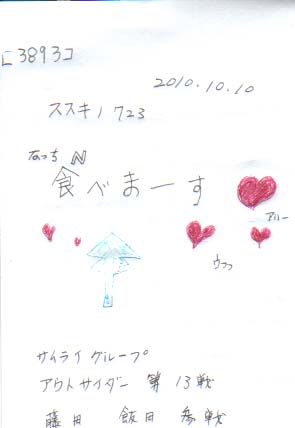 に3893コ
2010.10.10
ススキノ723
なっち N
食べまーす
アハー
ウフフ
サムライグループ
アウトサイダー 第13戦
藤田 飯田 参戦